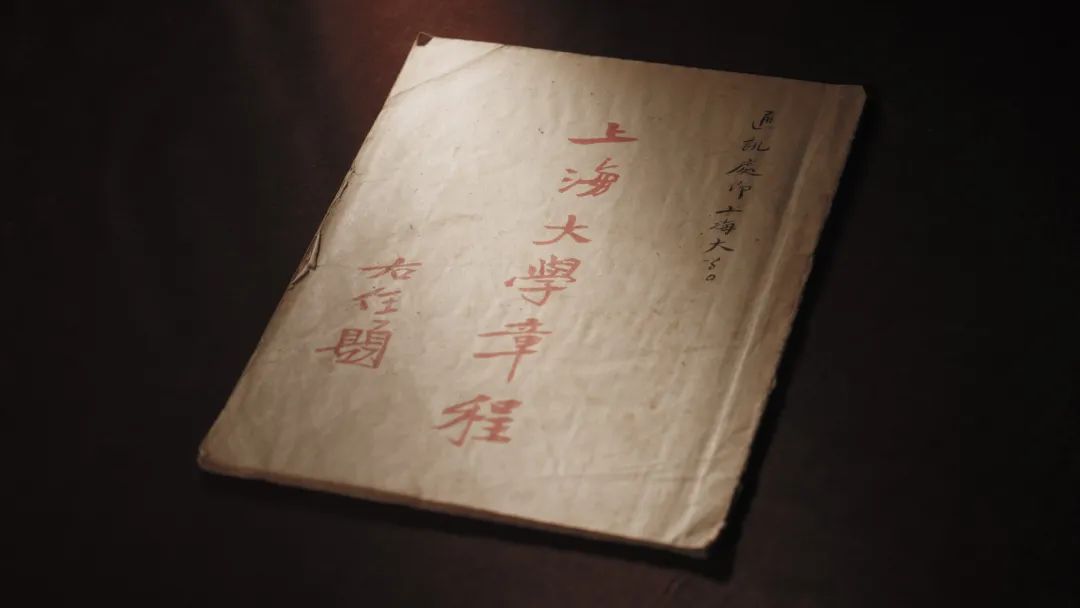 通訊處即上海大
上海大學章程
右任題